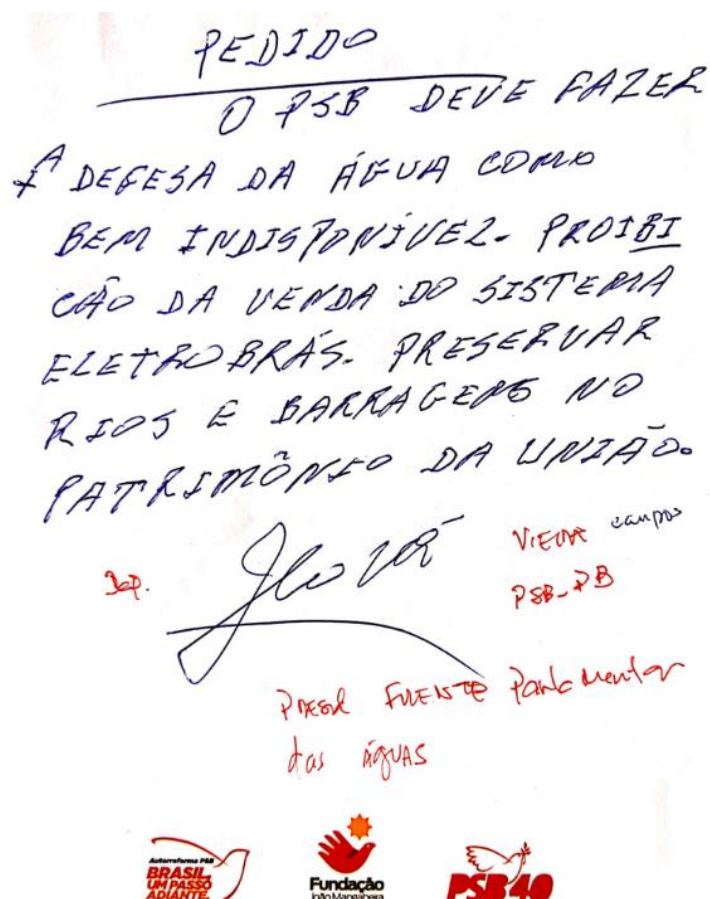 PEDIDO
O PSB DEVE FAZER
A DEFESA DA ÁGUA COMO
BEM INDISPONÍVEL. PROIBI
ÇÃO DA VENDA DO SISTEMA
ELETROBRÁS. PRESERVAR
RIOS E BARRAGENS NO
PATRIMÔNIO DA UNIÃO.
Dep. Jeová VIEIRA campos
PSB-PB
PRESD FRENTE Parlamentar
das ÁGUAS
Autorreforma PSB
BRASIL
UM PASSO
ADIANTE
Fundação
João Mangabeira
PSB 40